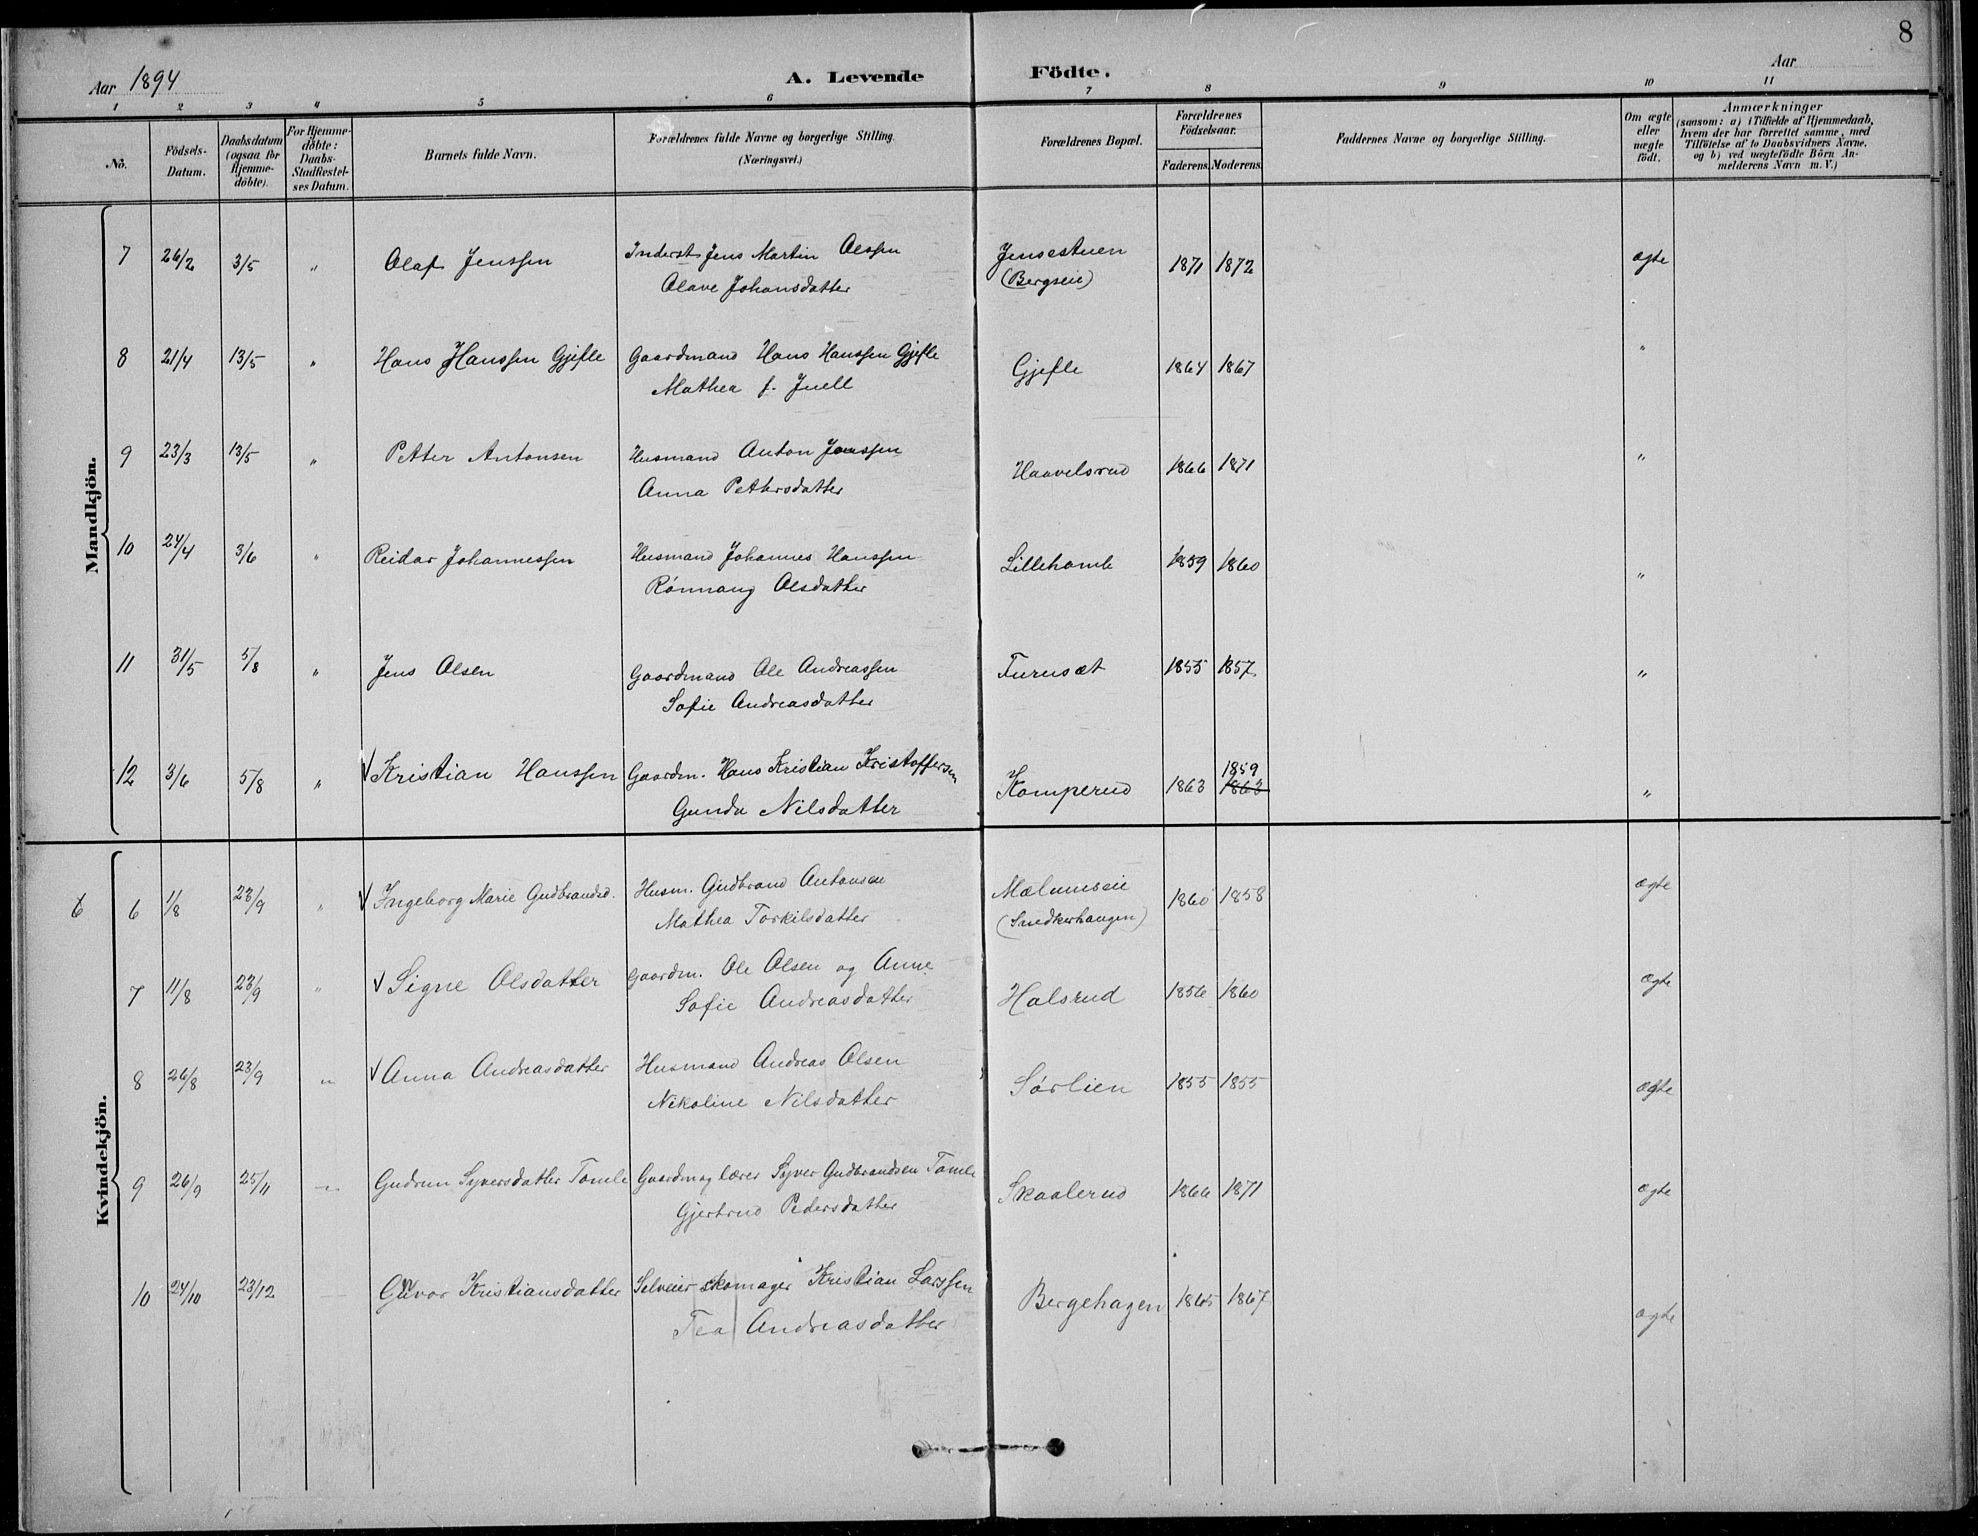 8
Aar 1894 A. Levende Födte. Aar
1 2 3 4 5 6 7 8 9 10 11
No. Födsels-Datum. Daabsdatum (ogsaa for Hjemme-döbte). For Hjemme-döbte: Daabs-Stadfæstel-ses Datum. Barnets fulde Navn. Forældrenes fulde Navne og borgerlige Stilling. (Næringsvei.) Forældrenes Bopæl. Forældrenes Födselsaar. Faderens. Moderens. Faddernes Navne og borgerlige Stilling. Om ægte eller uægte födt. Anmærkninger (saasom: a) i Tilfælde af Hjemmedaab, hvem der har forrettet samme, med Tilföielse af to Daabsvidners Navne, og b) ved uægtefödte Börn An-melderens Navn m. V.)
Mandkjön.
7 26/2 3/5 " Olaf Jenssen Inderst Jens Martin Olssen Jensestuen 1871 1872 ægte
Olave Johansdatter (Bergseie)
8 21/4 13/5 " Hans Hanssen Gjefle Gaardmand Hans Hanssen Gjefle Gjefle 1864 1867 "
Mathea f. Juell
9 23/3 13/5 " Petter Antonsen Husmand Anton Jonssen Haavelsrud 1866 1871 "
Anna Pettersdatter
10 24/4 3/6 " Reidar Johannessen Husmand Johannes Hanssen Lillehamle 1859 1860 "
Rønnaug Olsdatter
11 31/5 5/8 " Jens Olsen Gaardmand Ole Andreassen Furusæt 1855 1857 "
Sofie Andreasdatter
12 3/6 5/8 " √ Kristian Hanssen Gaardm. Hans Kristian Kristoffersen Kamperud 1863 1859 1863 "
Gunda Nilsdatter
Kvindekjön.
6 6 1/8 23/9 " √ Ingeborg Marie Gudbrandsd. Husm. Gudbrand Antonsen Mælumseie 1860 1858 ægte
Mathea Torkilsdatter (Snedkerhaugen)
7 11/8 23/9 " √ Signe Olsdatter Gaardm. Ole Olsen og Anne Halsrud 1856 1860 ægte
Sofie Andreasdatter
8 26/8 23/9 " √ Anna Andreasdatter Husmand Andreas Olsen Sørlien 1855 1855 ægte
Nikoline Nilsdatter
9 26/9 25/11 Gudrun Syversdatter Tomle Gaardm og lærer Syver Gudbrandsen Tomle Skaalerud 1866 1871 ægte
Gjertrud Pedersdatter
10 24/10 23/12 Gunvor Kristiansdatter Selveier skomager Kristian Larssen Bergehagen 1865 1867 ægte
Tea Andreasdatter